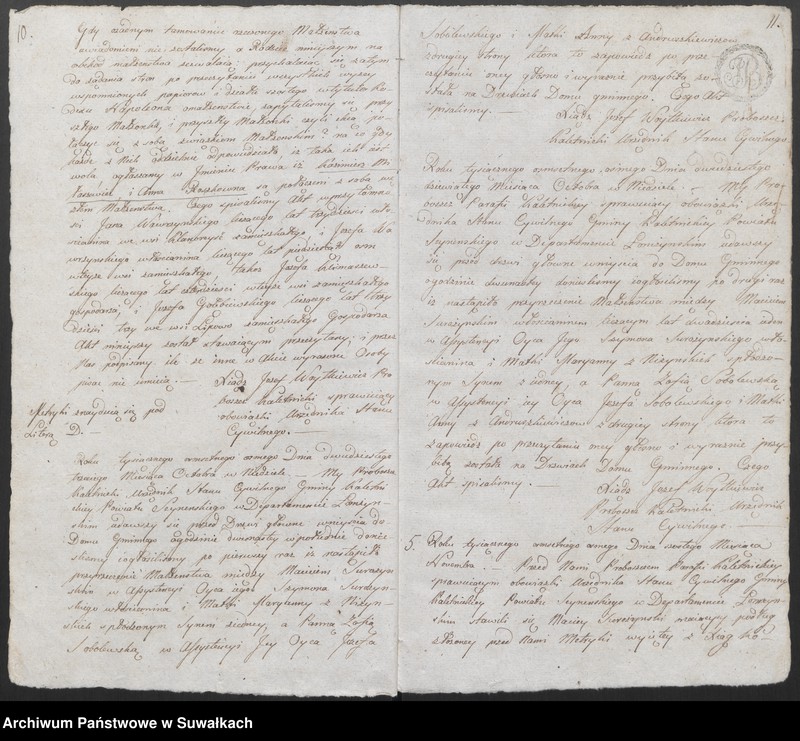 10.
Gdy żadnym tamowanie rzeczonego Małżeństwa
uwiadomieni nie zostaliśmy a Rodzice niniejszym na
obchód małżeństwa zezwalaią; przychylaiąc się zatym
do żądania stron po przeczytaniu wszystkich wyżey
wspomnionych papierow i działu szóstego w tytule Ko-
dexu Napoleona o małżeństwie, zapytaliśmy się przy-
szłego Małżonka, i przyszłey Małżonki, czyli chcą po-
łączyć się z sobą związkiem Małżenskim? na co gdy
każde z Nich oddzielnie odpowiedziało iż taka ich iest
wola ogłaszamy w Jmieniu Prawa iż Kazimierz Mi-
i Anna Roszkowna są połączeni z sobą wę-
złem Małżenstwa. Czego spisaliśmy Akt w przytomno-
ści Jana Wawrzynskiego liczącego lat trzydzieści wło-
ścianina we wsi zamieszkałego, i Jozefa Wa-
wrzynskiego włościanina liczącego lat pięćdziesiąt osm
w teyże wsi zamieszkałego, także Jozefa
skiego liczącego lat czterdzieści w teyże wsi zamieszkałego
gospodarza, i Jozefa Gołębiewskiego liczącego lat trzy-
dzieści trzy we wsi Lipowo zamieszkałego Gospodarza
Akt ninieyszy został stawaiącym przeczytany, i przez
Nas podpisany ile że inne w Akcie wyrażone Osoby
pisać nie umieią. —
Xiądz Jozef Woytkiewicz Pro-
boszcz Kaletnicki sprawuiący
obowiązki Urzędnika Stanu
Cywilnego. —
Metryki znayduią się pod
Literą D. —
Roku tysiącznego osmsetnego osmego Dnia dwudziestego
trzeciego Miesiąca Octobra w Niedziele — My Proboszcz
Kaletnicki Urzędnik Stanu Cywilnego Gminy Kaletni-
ckiey Powiatu Seynenskiego w Departamencie Łomżyn-
skim udawszy się przed Drzwi główne weyścia do
Domu Gminnego o godzinie dwunastey w południe donie-
śliśmy i ogłosiliśmy po pierwszy raz iż nastąpiło
przyrzeczenie Małżenstwa między Macieiem Surażyn-
skim w Assystencyi Oyca iego Szymona Surażyn-
skiego włościanina i Matki Maryanny z Niżyn-
skich spłodzonym Synem z iedney, a Panną Zofią
Sobolewską w Assystencyi Jey Oyca Jozefa
11.
Sobolewskiego i Matki Anny z Andruszkiewiczow
z drugiey strony ktora to zapowiedź po prze-
czytaniu oney głośno i wyraźnie przybita zo-
stała na Drzwiach Domu gminnego. Czego Akt
spisaliśmy. —
Xiądz Jozef Woytkiewicz Proboszcz
Kaletnicki Urzędnik Stanu Cywilnego
Roku tysiącznego osmsetnego osmego Dnia dwudziestego
dziewiątego Miesiąca Octobra w Niedziele. — My Pro-
boszcz Parafii Kaletnickiey sprawuiący obowiązki Urzę-
dnika Stanu Cywilnego Gminy Kaletnickiey Powiatu
Seynenskiego w Departamencie Łomżynskim udawszy
się przed drzwi główne weyścia do Domu Gminnego
o godzinie dwunastey donieśliśmy i ogłosiliśmy po drugi raz
iż nastąpiło przyrzeczenie Małżeństwa między Macieiem
Surażynskim włościaninem liczącym lat dwadzieścia ieden
w Assystencyi Oyca Jego Szymona Surażynskiego wło-
ścianina i Matki Maryanny z Niżynskich spłodzo-
nym Synem z iedney, a Panną Zofią Sobolewską
w Assystencyi iey Oyca Jozefa Sobolewskiego i Matki
Anny z Andruszkiewiczow z drugiey strony ktora to
zapowiedź po przeczytaniu oney głośno i wyraźnie przy-
bita została na Drzwiach Domu Gminnego. Czego
Akt spisaliśmy. —
Xiądz Jozef Woytkiewicz
Proboszcz Kaletnicki Urzędnik
Stanu Cywilnego. —
5. Roku tysiącznego osmsetnego osmego Dnia szóstego Miesiąca
Novembra. — Przed Nami Proboszczem Parafii Kaletnickiey
sprawuiącym obowiązki Urzędnika Stanu Cywilnego Gminy
Kaletnickiey Powiatu Seynenskiego w Departamencie Łomżyn-
skim stawili się Maciey Surażynski maiący podług
złożoney przed Nami Metryki wyiętey z Xiąg Ko-
Archiwum Państwowe w Suwałkach